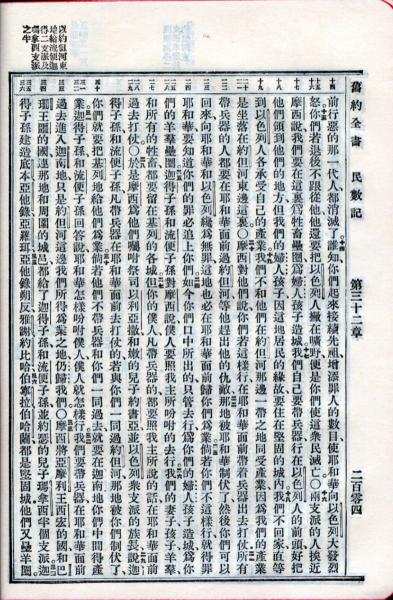 舊約全書　民數記　第三十二章　二百零四
前行惡的那一代人都消滅了誰知你們起來接續先祖增添罪人的數目使耶和華向以色列大發烈
怒你們若退後不跟從他他還要把以色列人撇在曠野便是你們使這衆民滅亡〇兩支派的人挨近
摩西說我們要在這裏爲牲畜壘圈爲婦人孩子造城我們自己要帶兵器行在以色列人的前頭好把
他們領到他們的地方但我們的婦人孩子因這地居民的緣故要住在堅固的城內我們不回家直等
到以色列人各承受自己的產業我們不和他們在約但河那邊一帶之地同受產業因爲我們的產業
是坐落在約但河東邊這裏〇摩西對他們說你們若這樣行在耶和華面前帶着兵器出去打仗所有
帶兵器的人都要在耶和華面前過約但河等他趕出他的仇敵那地被耶和華制伏了然後你們可以
回來向耶和華和以色列纔爲無罪這地也必在耶和華面前歸你們爲業倘若你們不這樣行就得罪
耶和華要知道你們的罪必追上你們如今你們口中所出的只管去行爲你們的婦人孩子造城爲你
們的羊羣壘圈迦得子孫和流便子孫對摩西說僕人要照我主所吩咐的去行我們的妻子孩子羊羣
和所有的牲畜都要留在基列的各城但你的僕人凡帶兵器的都要照我主所說的話在耶和華面前
過去打仗〇於是摩西爲他們囑咐祭司以利亞撒和嫩的兒子約書亞並以色列衆支派的族長說迦
得子孫和流便子孫凡帶兵器在耶和華面前去打仗的若與你們一同過約但河那地被你們制伏了
你們就要把基列地給他們爲業倘若他們不帶兵器和你們一同過去就要在迦南地你們中間得產
業迦得子孫和流便子孫回答說耶和華怎樣吩咐僕人僕人就怎樣行我們要帶兵器在耶和華面前
過去進入迦南地只是約但河這邊我們所得爲業之地仍歸我們〇摩西將亞摩利王西宏的國和巴
珊王噩的國連那地和周圍的城邑都給了迦得子孫和流便子孫並約瑟的兒子瑪拿西半個支派迦
得子孫建造底本亞他錄亞羅珥亞他錄朔反雅謝約比哈伯寧拉伯哈蘭都是堅固城他們又壘羊圈
以約但河東
地給流便迦
得二支派及
瑪拿西支派
之半